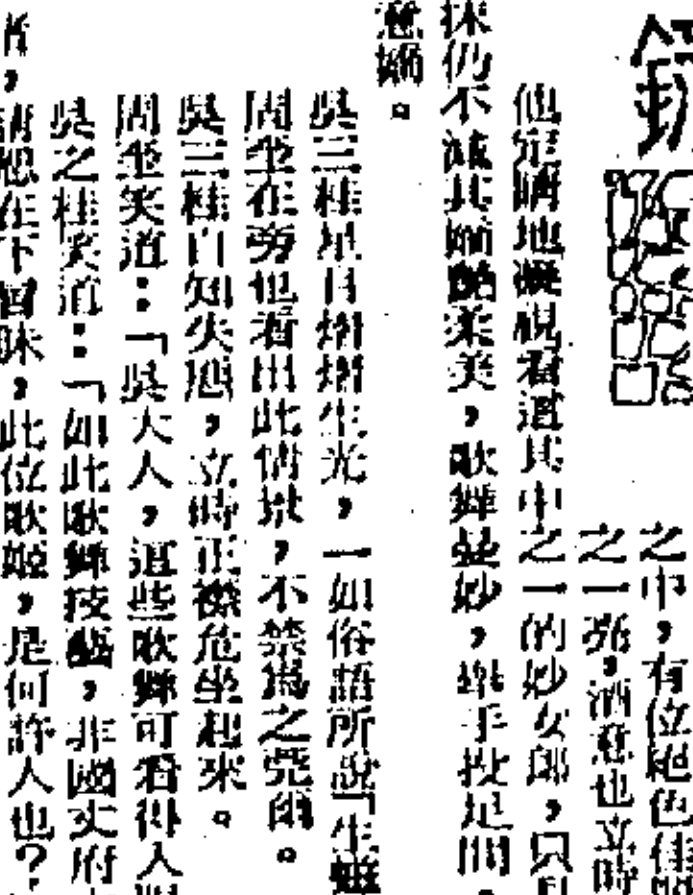 之中，有位絕色佳
之一亮，酒意也立時
他定睛地凝視着這其中之一的妙女郎，只見
抹仍不減其嬌艷柔美，歌舞曼妙，舉手投足間，
意
吳三桂星目熠熠生光，一如俗語所說「生
周奎在旁也看出此情狀，不禁爲之莞爾。
吳三桂自知失態，立時正襟危坐起來。
周奎笑道：「吳大人，這些歌舞可看得入
吳之桂笑道：「如此歌舞技藝，非國丈府
者，請恕在下冒昧，此位歌姬，是何許人也？